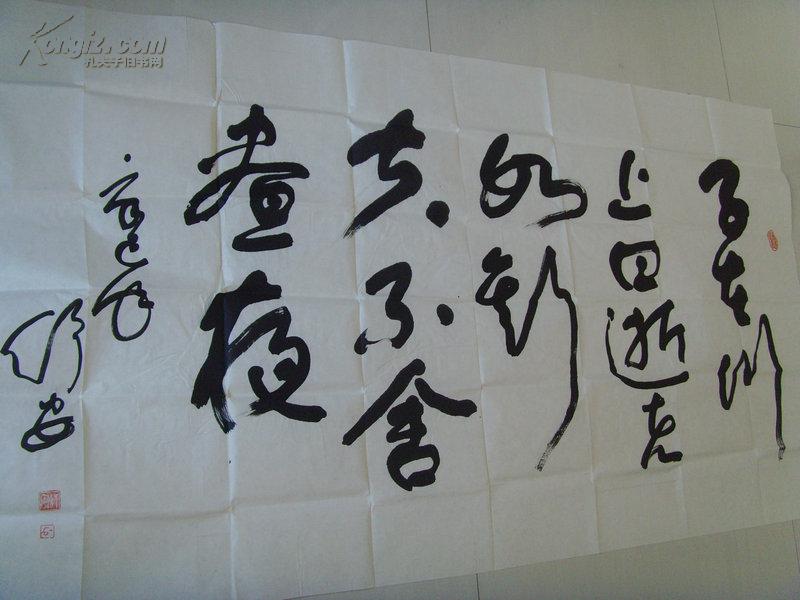 子在川
上曰逝者
如斯
夫不舍
晝夜
舒安
Kongfz.com
孔夫子旧书网